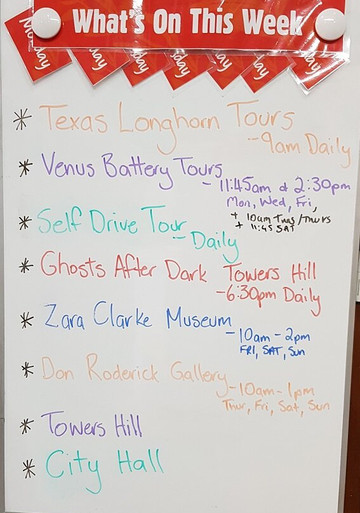 What's On This Week
* Texas Longhorn Tours
- 9am Daily
* Venus Battery Tours
- 11:45am & 2:30pm
Mon, Wed, Fri,
+ 10am Tues/Thurs
+ 11:45 SAT
* Self Drive Tour
- Daily
* Ghosts After Dark Towers Hill
- 6:30pm Daily
* Zara Clarke Museum
- 10am - 2pm
FRI, SAT, Sun
* Don Roderick Gallery
- 10am - 1pm
Thur, Fri, Sat, Sun
* Towers Hill
* City Hall